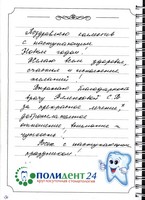 Поздравляю клиентов
с наступающим
Новым годом!
Желаю всем здоровья,
счастья и исполнения
желаний!
Выражаю благодарность
врачу
за прекрасное лечение,
доброжелательное
отношение, внимание и
чуткость!
Всех с наступающим
праздником!
ПОЛИДЕНТ 24
круглосуточная стоматология